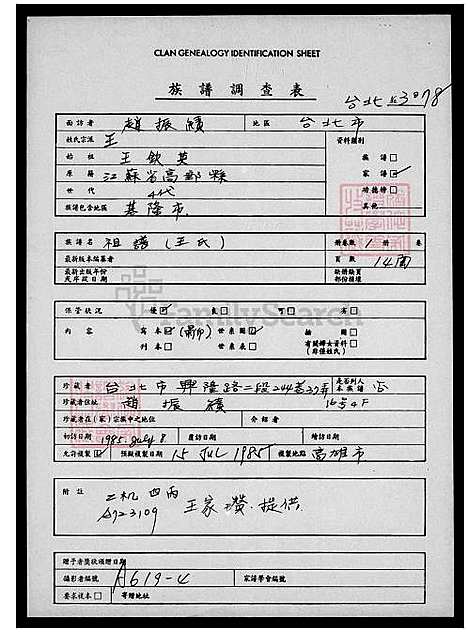 CLAN GENEALOGY IDENTIFICATION SHEET
族譜調查表
台北 五3078
面訪者 趙振績 地區 台北市
姓氏宗派 王 資料類別
始祖 王欽英 族譜□
原籍 江蘇省高郵縣 家譜☑
世代 4代 功德榜□
族譜包含地區 基隆市. 其他
族譜名 祖譜(王氏) 冊卷數 1 冊 卷
最新版本編纂者 頁數 14面
最新出版年份 缺冊缺頁
及序跋日期 部份損壞
保管狀況 優☑ 良□ 可□ 劣□
內容 寫本☑(影印) 世系圖☑ 插圖□
刊本□ 世系表□ 有關婦女資料□
(非僅姓氏)
FamilySearch
珍藏者 台北市興隆路二段244巷37弄 是否列入本族譜 否
珍藏者住址 趙振績 16号4F
珍藏者在(家)宗族中之地位 介紹者
初訪日期 1985. July 8 覆訪日期 續訪日期
允許複製☑ 預擬複製日期 15 JUL 1985 複製地點 高雄市
附註 二机四丙
A723109 王家瓚.提供.
贈予者獎狀頒贈日期
攝影者編號 A619-4 家譜學會編號
要求複本□ 寄贈地址